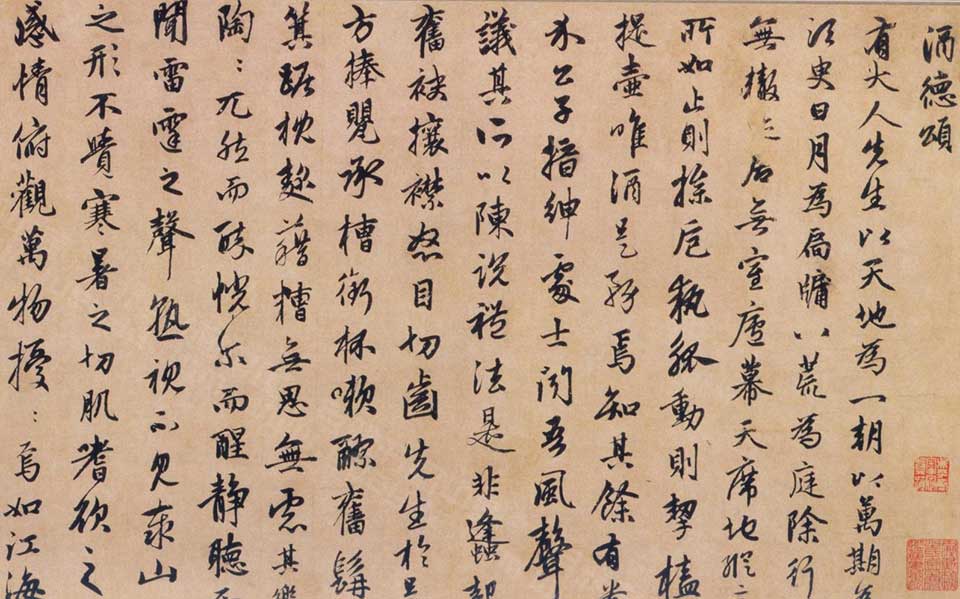 酒德頌
有大人先生以天地為一朝以萬期為
須臾日月為扃牖八荒為庭除行
無轍迹居無室廬幕天席地縱
所如止則操卮執觚動則挈榼
提壺唯酒是務焉知其餘有貴
介公子搢紳處士聞吾風聲
議其所以陳說禮法是非蠭起
奮袂攘襟怒目切齒先生於是
方捧甖承槽銜杯嗽醪奮髯
箕踞枕麴藉糟無思無慮其樂
陶〻兀然而醉恍尓而醒靜聽不
聞雷霆之聲孰視不見泰山
之形不覺寒暑之切肌嗜欲之
感情俯觀萬物擾〻焉如江海